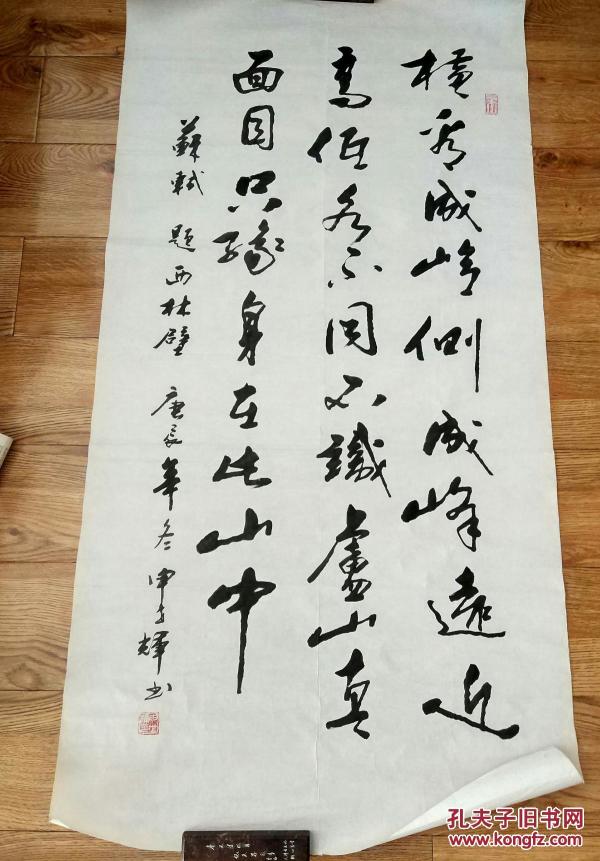 横看成岭侧成峰遠近
高低各不同不識盧山真
面目只緣身在此山中
蘇軾 题西林壁 庚辰年冬 申 輝书
孔夫子旧书网
www.kongfz.com